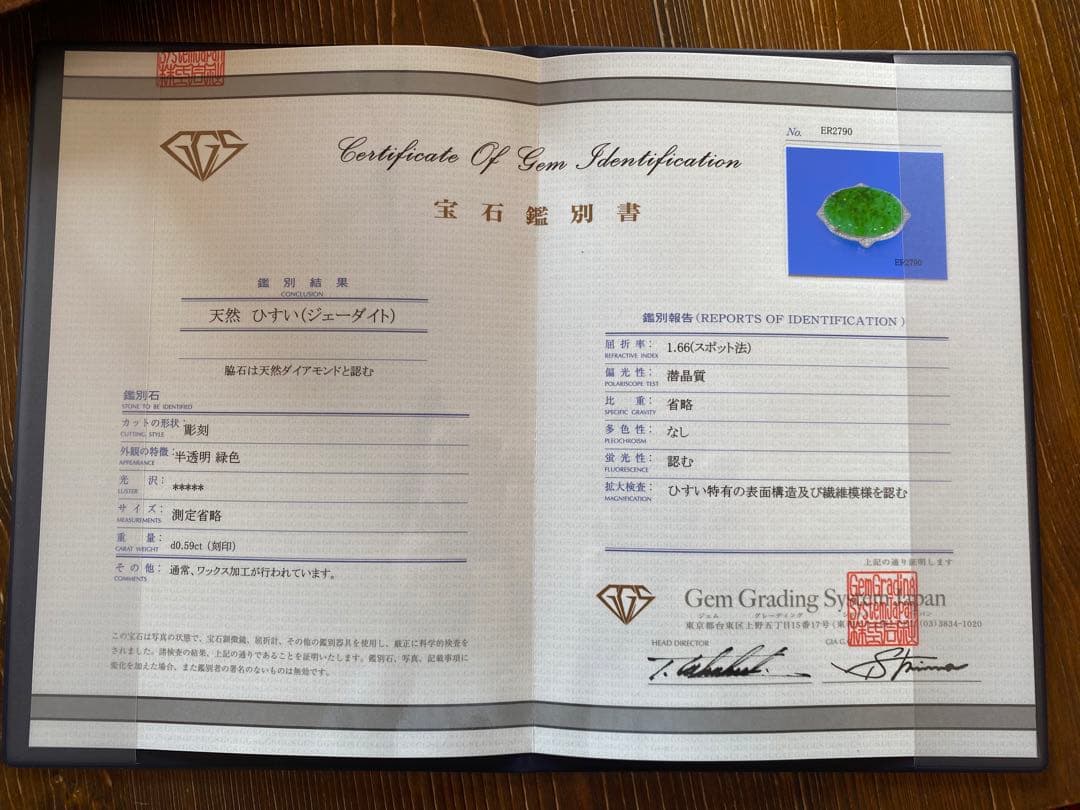 SystemJapan
GGS
Certificate Of Gem Identification
宝石鑑別書
No. ER2790
ER2790
鑑別結果
CONCLUSION
天然 ひすい(ジェーダイト)
脇石は天然ダイアモンドと認む
鑑別石
STONE TO BE IDENTIFIED
カットの形状: 彫刻
CUTTING STYLE
外観の特徴: 半透明 緑色
APPEARANCE
光沢: *****
LUSTER
サイズ: 測定省略
MEASUREMENTS
重量: d0.59ct (刻印)
CARAT WEIGHT
その他: 通常、ワックス加工が行われています。
COMMENTS
この宝石は写真の状態で、宝石顕微鏡、屈折計、その他の鑑別器具を使用し、厳正に科学的検査を
されました。諸検査の結果、上記の通りであることを証明いたします。鑑別石、写真、記載事項に
変化を加えた場合、また鑑別者の署名のないものは無効です。
鑑別報告(REPORTS OF IDENTIFICATION)
屈折率: 1.66(スポット法)
REFRACTIVE INDEX
偏光性: 潜晶質
POLARISCOPE TEST
比重: 省略
SPECIFIC GRAVITY
多色性: なし
PLEOCHROISM
蛍光性: 認む
FLUORESCENCE
拡大検査: ひすい特有の表面構造及び繊維模様を認む
MAGNIFICATION
上記の通り証明します
GGS
Gem Grading System Japan
ジェム グレーディング
東京都台東区上野五丁目15番17号
(03)3834-1020
GemGrading
SystemJapan
HEAD DIRECTOR
GIA G.